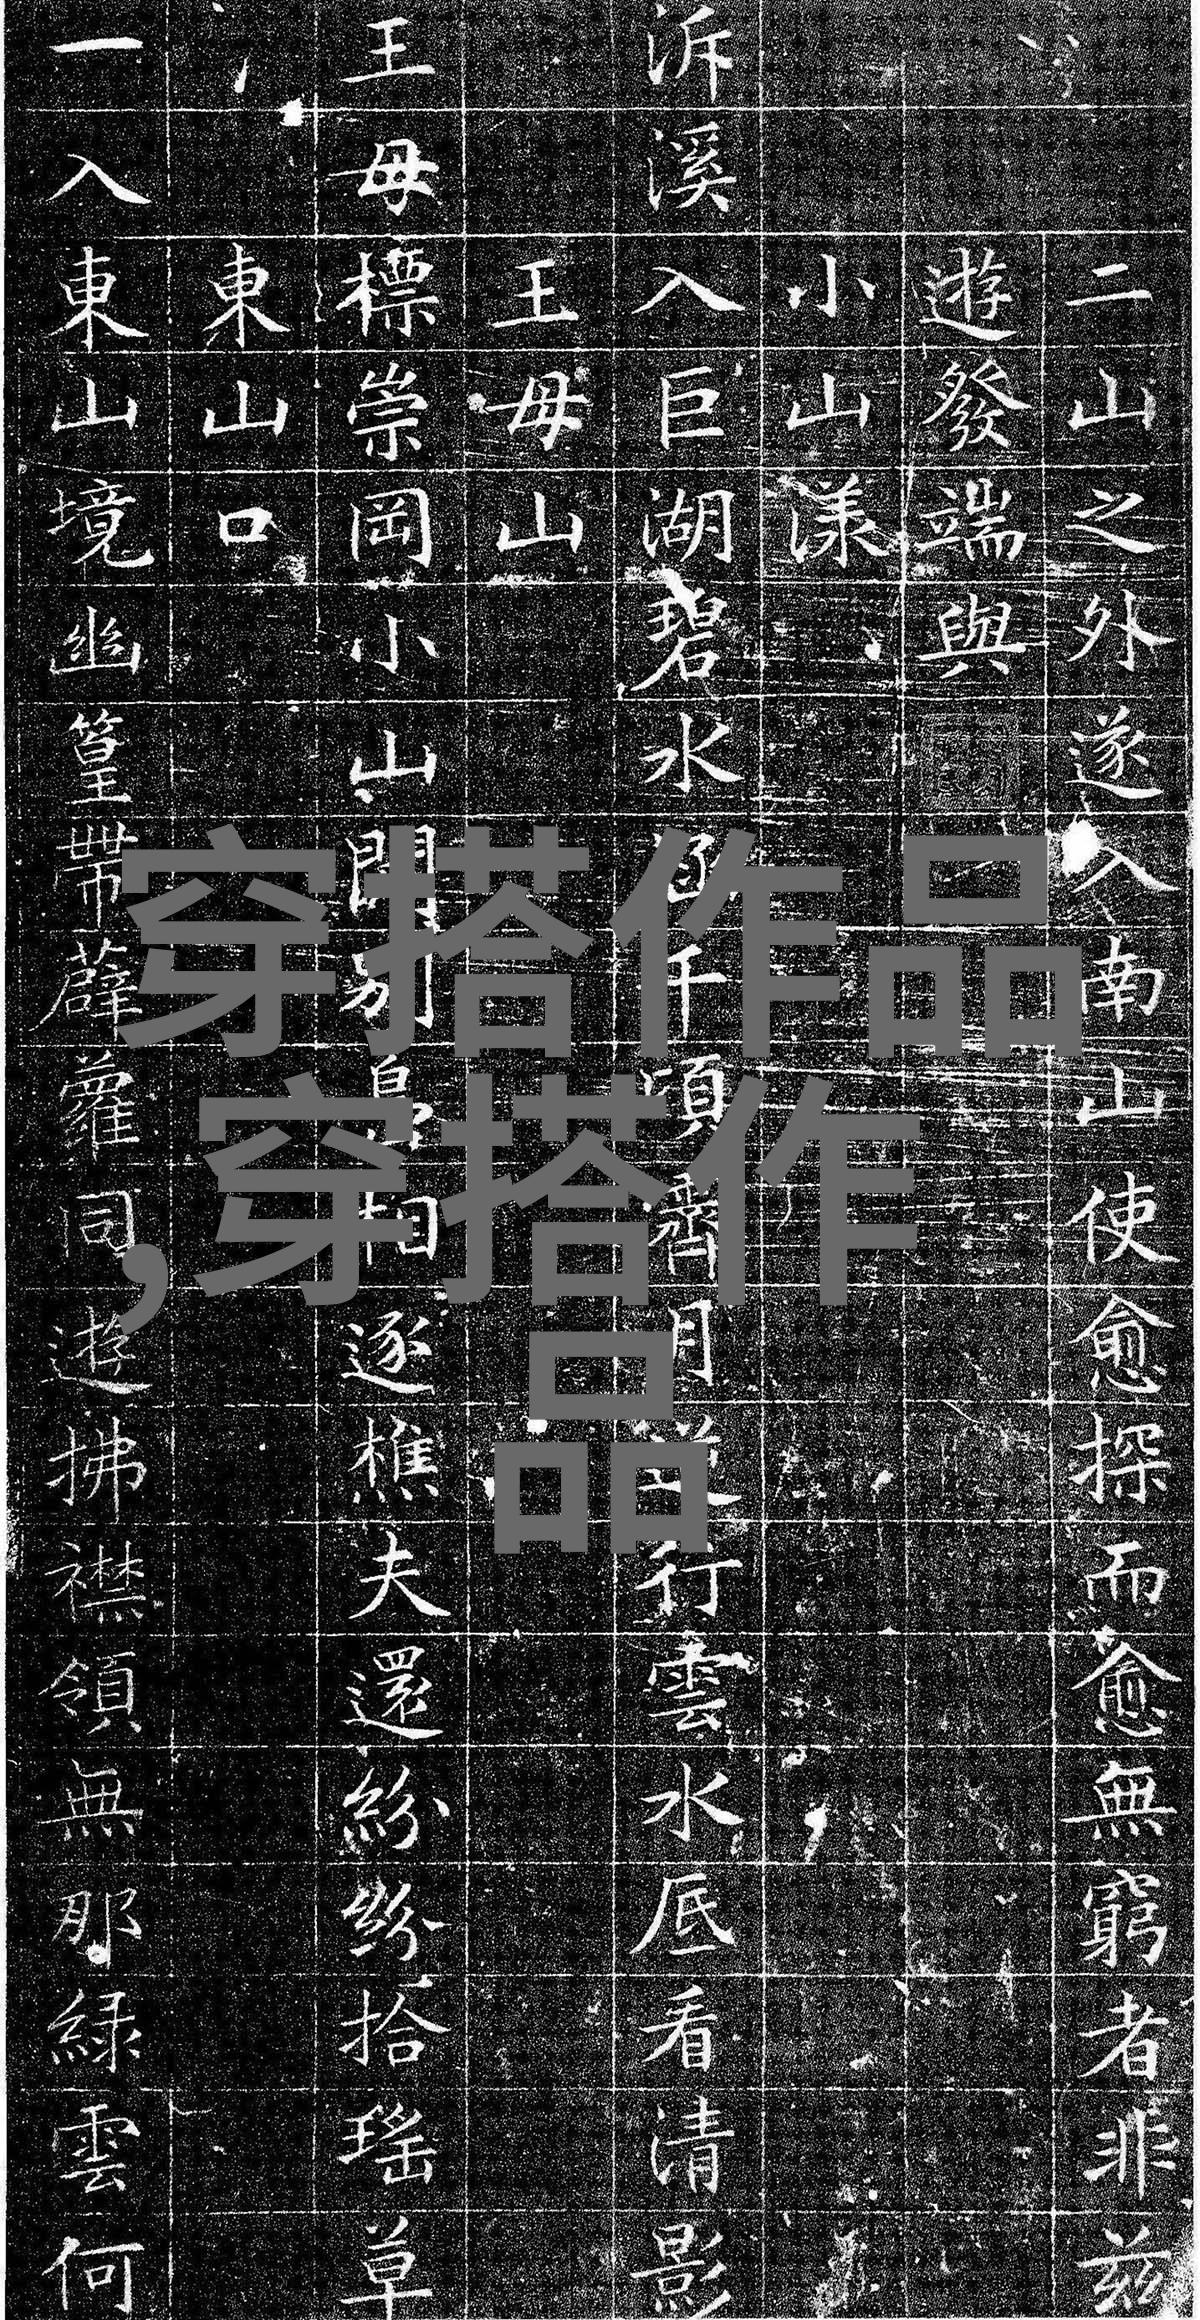 二山之外遂入南山使愈探而愈無窮者非兹
遊發端與
小山漾
泝溪入巨湖碧水涵千頃霽月行雲水底看清影
王母山
王母標崇岡小山開別島相逐樵夫還紛紛拾瑤草
東山口
一入東山境幽篁帶薜蘿同遊拂襟領無那緑雲何
穿搭作品
,穿搭作
品